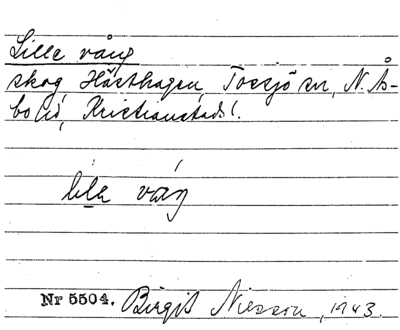 Lille vång
skog Hästhagen, Tossjö sn, N. Ås-
bo hd, Kristianstads l.
lila váŋ
Nr 5504. Birgit Nilsson, 1943.